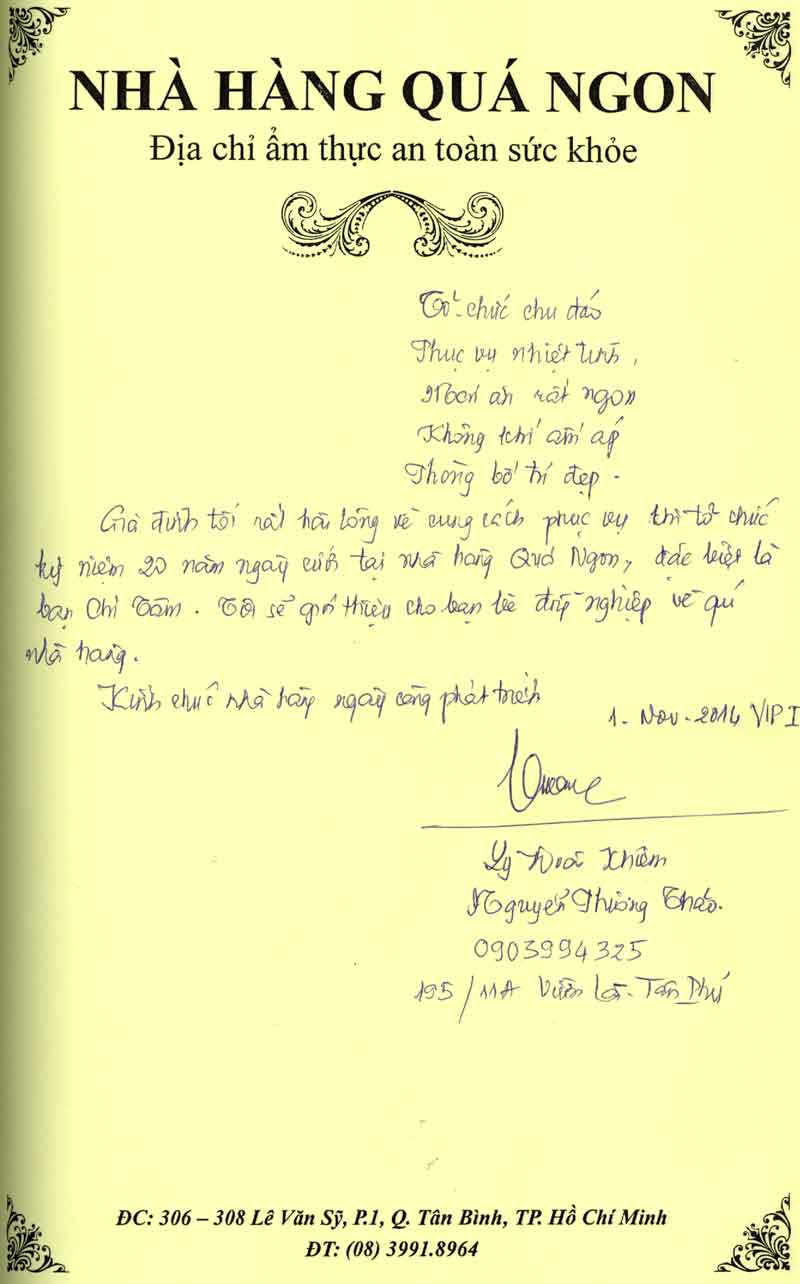 NHÀ HÀNG QUÁ NGON
Địa chỉ ẩm thực an toàn sức khỏe
Tổ chức chu đáo
Phục vụ nhiệt tình,
Món ăn rất ngon
Không khí ấm áp
Phòng bố trí đẹp.
Gia đình tôi rất hài lòng về cung cách phục vụ khi tổ chức
kỷ niệm 20 năm ngày cưới tại nhà hàng Quá Ngon, đặc biệt là
bạn Chí Tâm. Tôi sẽ giới thiệu cho bạn bè đồng nghiệp về quí
nhà hàng.
Kính chúc nhà hàng ngày càng phát triển
1. Nov. 2014 VIP I
Lý Khiêm
Nguyễn Phương Thảo.
0903994325
195/11A Vườn Lài. Tân Phú
ĐC: 306 – 308 Lê Văn Sỹ, P.1, Q. Tân Bình, TP. Hồ Chí Minh
ĐT: (08) 3991.8964